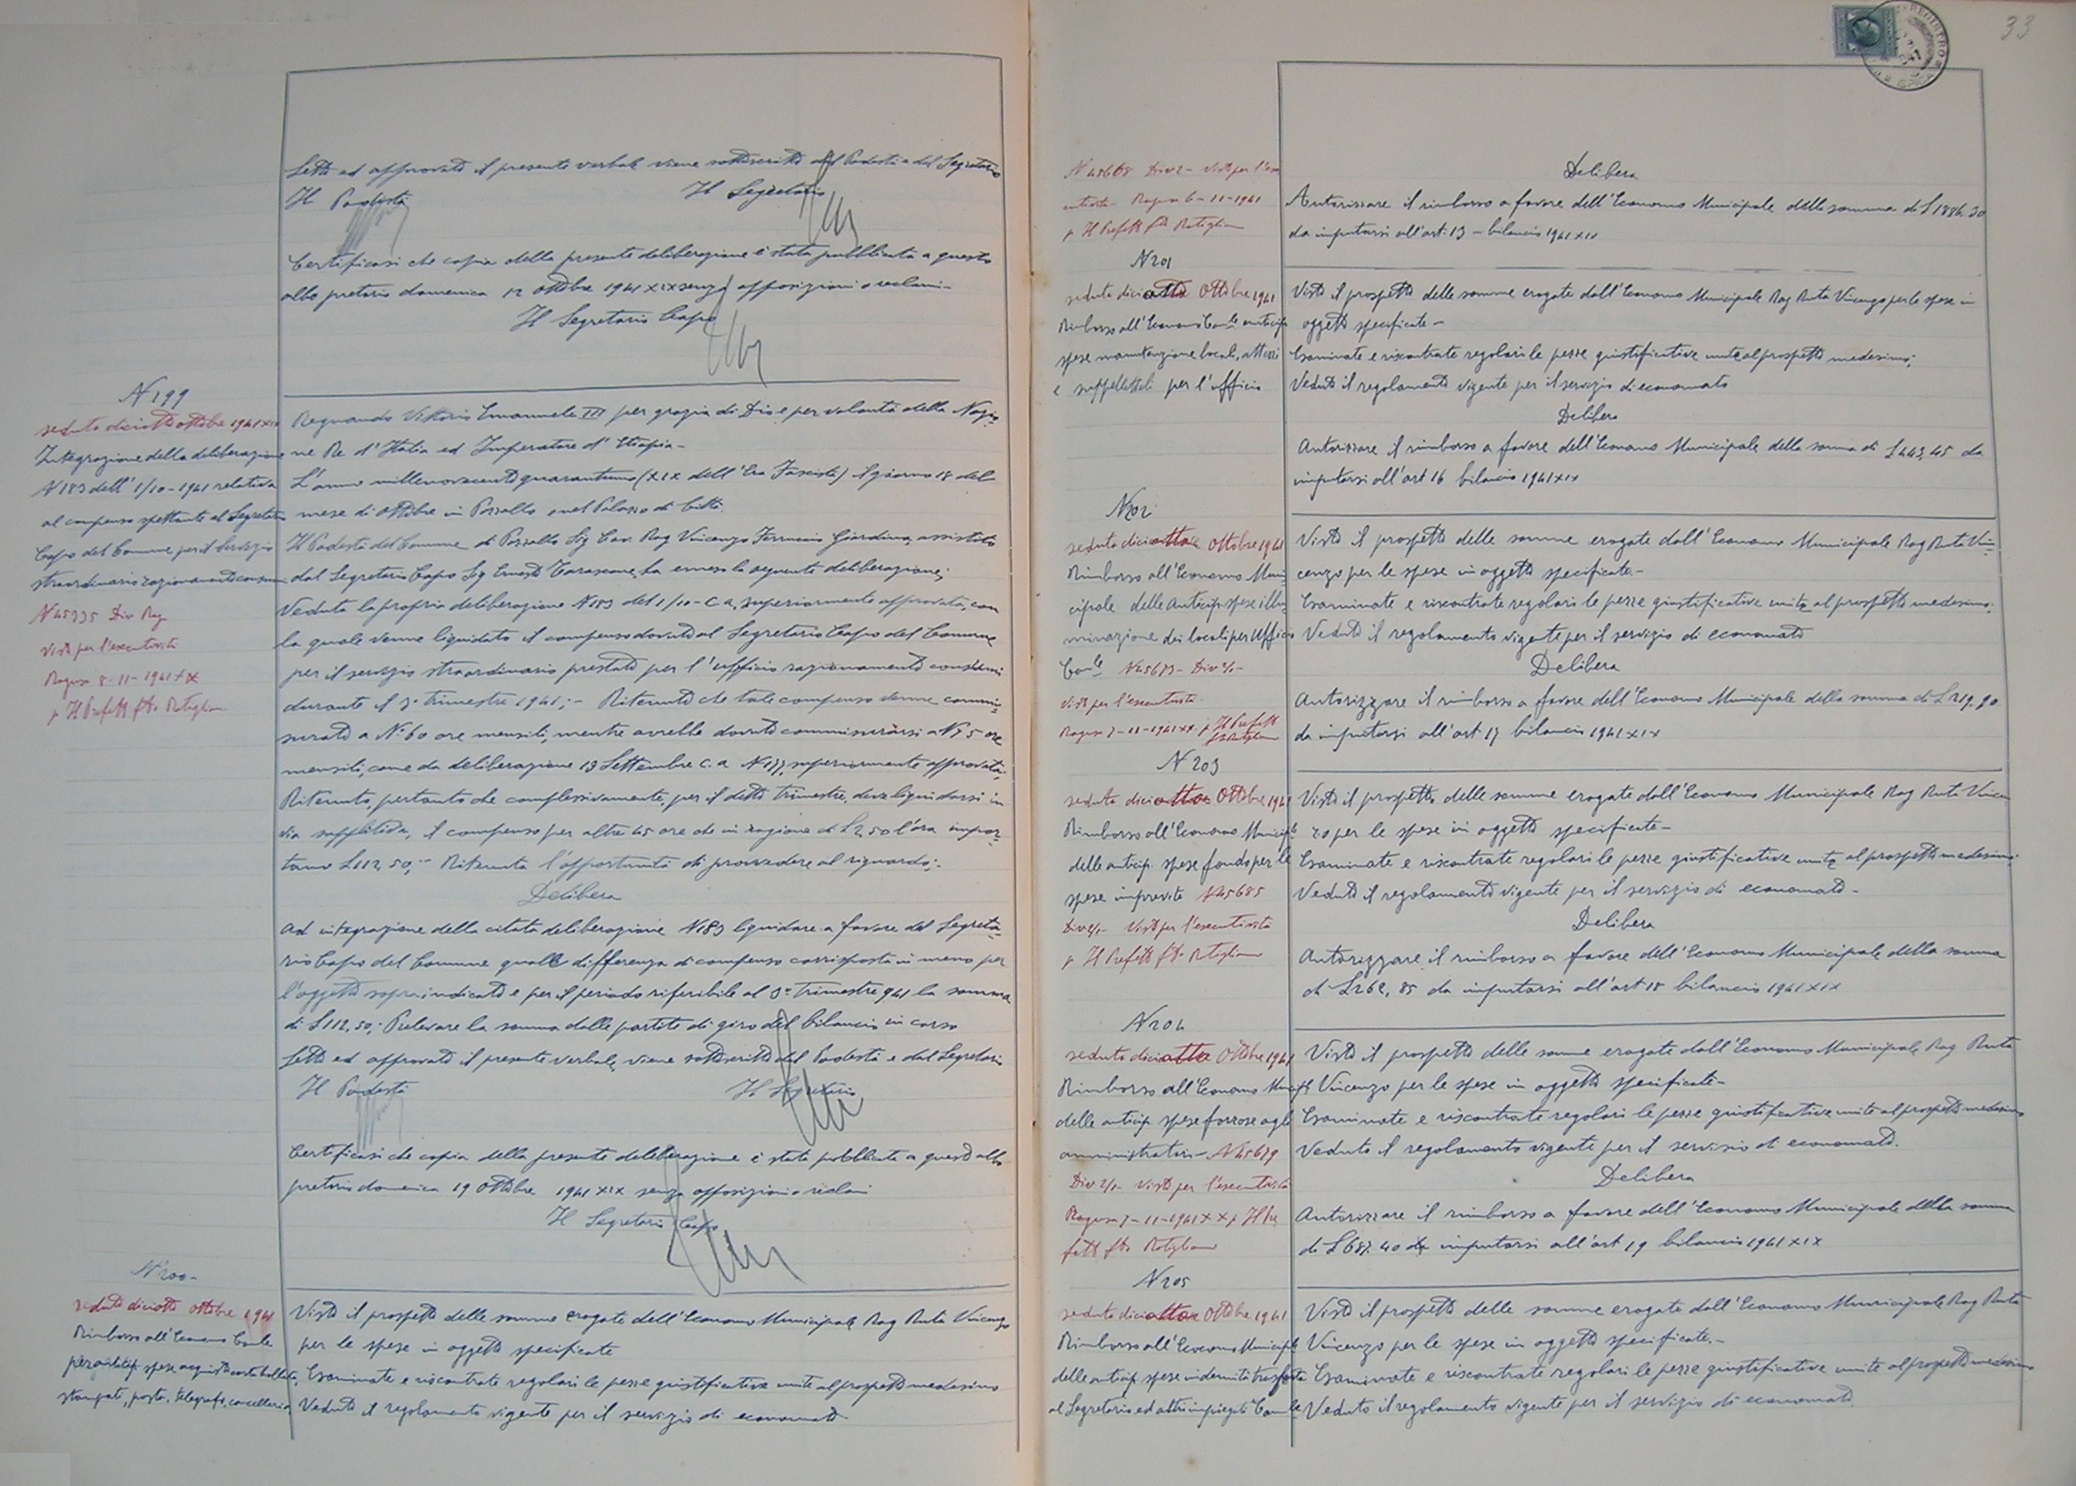 Letto ed approvato il presente verbale viene sottoscritto dal Podestà e dal Segretario
Il Podestà Il Segretario
Certificasi che copia della presente deliberazione è stata pubblicata a questo
albo pretorio domenica 12 ottobre 1941 XIX senza opposizioni o reclami-
Il Segretario Capo
N 199
seduta diciotto ottobre 1941 XIX
Integrazione della deliberazione
N 183 dell' 1/10-1941 relativa
al compenso spettante al Segretario
Capo del Comune per il servizio
straordinario razionamento consumi
N 45335 Div Rag
Visto per l'esecutività
Ragusa 8-11-1941 XX
p Il Prefetto fto
Regnando Vittorio Emanuele III per grazia di Dio e per volontà della Nazio-
ne Re d'Italia ed Imperatore d'Etiopia-
L'anno millenovecentoquarantuno (XIX dell'Era Fascista) il giorno 18 del
mese di ottobre in Pozzallo e nel Palazzo di Città.
Il Podestà del Comune di Pozzallo Sig Cav. Rag Vincenzo Ferruccio Giardina, assistito
dal Segretario Capo Sig Ernesto Tarascone, ha emesso la seguente deliberazione;
Veduta la propria deliberazione N 183 del 1/10-c.a., superiormente approvata, con
la quale venne liquidato il compenso dovuto al Segretario Capo del Comune
per il servizio straordinario prestato per l'ufficio razionamento consumi
durante il 3° trimestre 1941;- Ritenuto che tale compenso venne commi-
surato a N° 60 ore mensili, mentre avrebbe dovuto commisurarsi a N 75 ore
mensili, come da deliberazione 13 Settembre c.a. N 177, superiormente approvata.
Ritenuto, pertanto che complessivamente, per il detto trimestre, deve liquidarsi in
via suppletiva, il compenso per altre 45 ore che in ragione di L 2,50 l'ora impor-
tano L 112,50;- Ritenuta l'opportunità di provvedere al riguardo;-
Delibera
Ad integrazione della citata deliberazione N 183 liquidare a favore del Segreta-
rio Capo del Comune quale differenza di compenso corrisposta in meno per
l'oggetto sopraindicato e per il periodo riferibile al 3° trimestre 941 la somma
di L 112,50;- Prelevare la somma dalle partite di giro del bilancio in corso
Letto ed approvato il presente verbale, viene sottoscritto dal Podestà e dal Segretario
Il Podestà Il Segretario
Certificasi che copia della presente deliberazione è stata pubblicata a questo albo
pretorio domenica 19 ottobre 1941 XIX senza opposizioni o reclami
Il Segretario Capo
N 200-
seduta diciotto ottobre 1941
Rimborso all'Economo Com.le
per anticip. spese acquisto carta bollata,
stampati, posta, telegrafo, cancelleria
Visto il prospetto delle somme erogate dall'Economo Municipale Rag Ruta Vincenzo
per le spese in oggetto specificate
Esaminate e riscontrate regolari le pezze giustificative unite al prospetto medesimo
Veduto il regolamento vigente per il servizio di economato
33
N 45668 Div 2- Visto per l'ese
cutività- Ragusa 6-11-1941
p Il Prefetto fto
Delibera
Autorizzare il rimborso a favore dell'Economo Municipale della somma di L 1886.30
da imputarsi all'art. 13 - bilancio 1941 XIX
N 201
seduta diciotto Ottobre 1941
Rimborso all'Economo Com.le anticipa
spese manutenzione locali, attrezzi
e suppellettili per l'ufficio
Visto il prospetto delle somme erogate dall'Economo Municipale Rag Ruta Vincenzo per le spese in
oggetto specificate-
Esaminate e riscontrate regolari le pezze giustificative unite al prospetto medesimo;
Veduto il regolamento vigente per il servizio di economato
Delibera
Autorizzare il rimborso a favore dell'Economo Municipale della somma di L 443,45 da
imputarsi all'art 16 bilancio 1941 XIX
N 202
seduta diciotto Ottobre 1941
Rimborso all'Economo Muni
cipale delle anticip. spese illu
minazione dei locali per Ufficio
Com.le N 45673- Div 2/1-
Visto per l'esecutività-
Ragusa 7-11-1941 XX p Il Prefetto
Visto il prospetto delle somme erogate dall'Economo Municipale Rag Ruta Vin-
cenzo per le spese in oggetto specificate-
Esaminate e riscontrate regolari le pezze giustificative unite al prospetto medesimo.
Veduto il regolamento vigente per il servizio di economato
Delibera
Autorizzare il rimborso a favore dell'Economo Municipale della somma di L 219.90
da imputarsi all'art 17 bilancio 1941 XIX
N 203
seduta diciotto Ottobre 1941
Rimborso all'Economo Municip.le
delle anticip. spese fondo per le
spese impreviste N 45685
Div 2/1- Visto per l'esecutività
p Il Prefetto fto
Visto il prospetto delle somme erogate dall'Economo Municipale Rag Ruta Vincen
zo per le spese in oggetto specificate-
Esaminate e riscontrate regolari le pezze giustificative unite al prospetto medesimo
Veduto il regolamento vigente per il servizio di economato-
Delibera
Autorizzare il rimborso a favore dell'Economo Municipale della somma
di L 262,85 da imputarsi all'art 18 bilancio 1941 XIX
N 204
seduta diciotto Ottobre 1941
Rimborso all'Economo Municip.le
delle anticip. spese forzose agli
amministratori- N 45679
Div 2/1- Visto per l'esecutività
Ragusa 7-11-1941 XX p Il Pre
fetto fto
Visto il prospetto delle somme erogate dall'Economo Municipale Rag Ruta
Vincenzo per le spese in oggetto specificate-
Esaminate e riscontrate regolari le pezze giustificative unite al prospetto medesimo
Veduto il regolamento vigente per il servizio di economato.
Delibera
Autorizzare il rimborso a favore dell'Economo Municipale della somma
di L 687.40 da imputarsi all'art 19 bilancio 1941 XIX
N 205
seduta diciotto Ottobre 1941
Rimborso all'Economo Municip.le
delle anticip. spese indennità trasferta
al Segretario ed altri impiegati Com.le
Visto il prospetto delle somme erogate dall'Economo Municipale Rag Ruta
Vincenzo per le spese in oggetto specificate-
Esaminate e riscontrate regolari le pezze giustificative unite al prospetto medesimo
Veduto il regolamento vigente per il servizio di economato